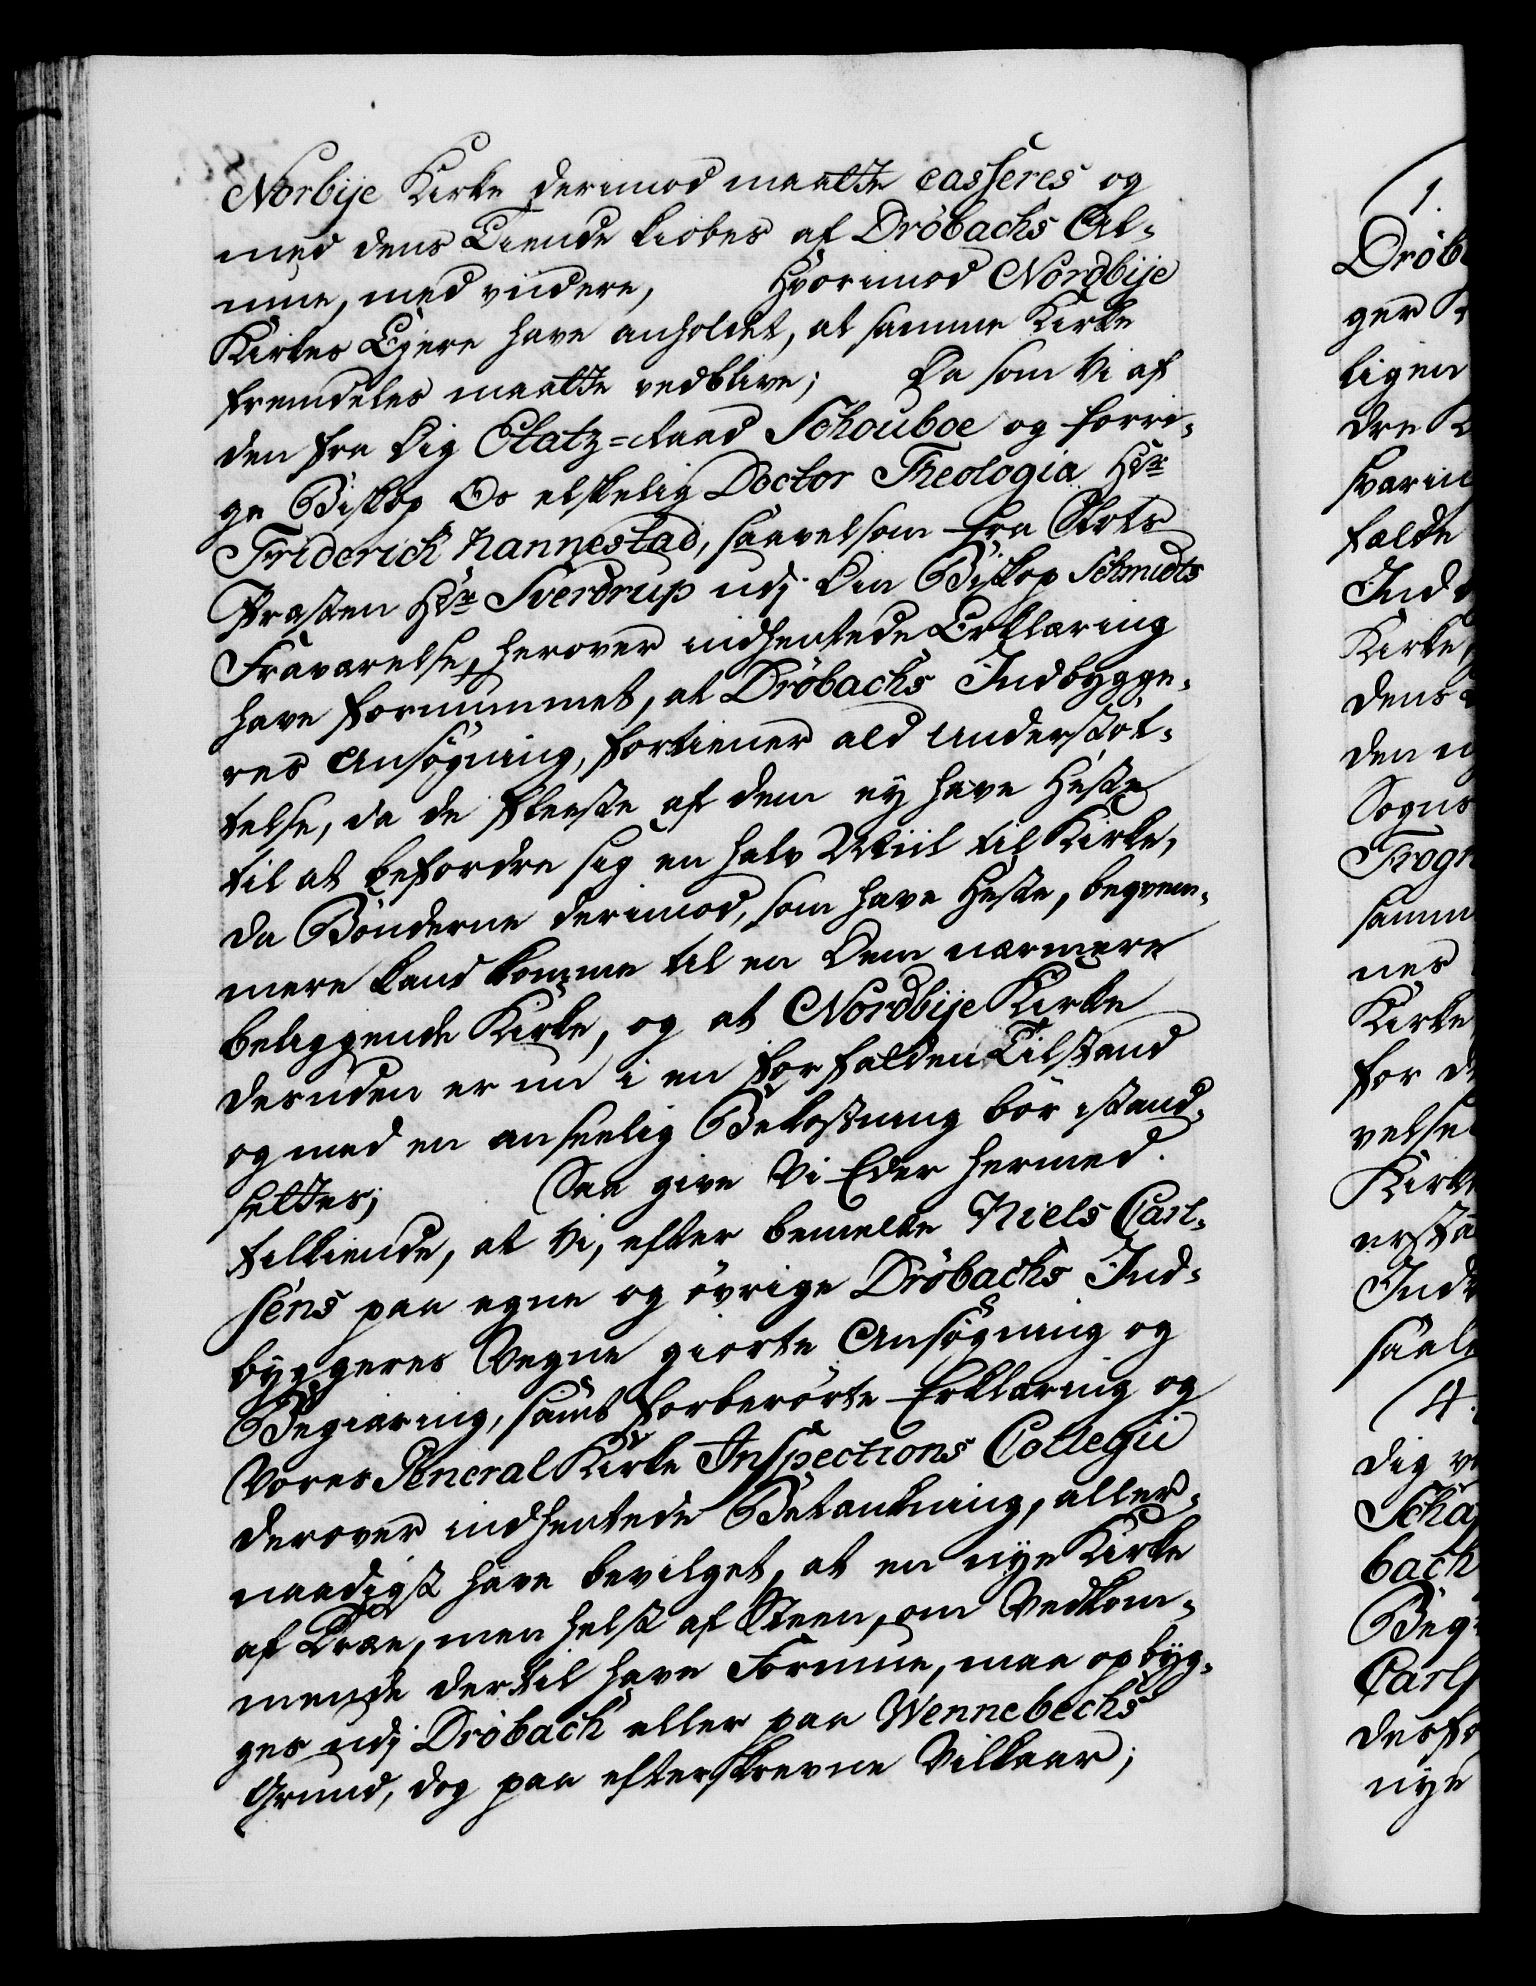 Norbije Kirke derimod maatte casseres og
med dens Tiende kiøbes af Drøbachs Al-
mue, med videre, Hvorimod Nordbije
Kirkes Ejere have anholdet, at samme Kirke
fremdeles maatte vedblive; Da som Vi af
den fra Dig Etatz-Raad Schouboe og forri-
ge Biskop Os elskelig Doctor Theologia Hr
Friderich Nannestad, saavelsom fra Slots
Præsten Hr Sverdrup udj Din Biskop Schmidts
Fraværelse, herover indhentede Erklæring
have fornummet, at Drøbachs Indbygge-
res Ansøgning, fortiener ald Understøt-
telse, da de fleeste af dem ey have Heste
til at befordre sig en halv Miil til Kirke,
da Bønderne derimod, som have Heste, beqvem-
mere kand komme til en Dem nærmere
beliggende Kirke, og at Nordbije Kirke
desuden er nu i en forfalden Tilstand
og med en anseelig Bekostning bør istand-
settes; Saa give Vi Eder hermed
tilkiende, at Vi, efter bemelte Niels Carl-
sens paa egne og øvrige Drøbachs Ind-
byggeres Vegne giorte Ansøgning og
Begiæring, samt forberørte Erklæring og
Vores General Kirke Inspections Collegii
derover indhentede Betænkning, aller-
naadigst have bevilget, at en nye Kirke
af Træe, men helst af Steen, om Vedkom-
mende dertil have Formue, maa opbyg-
ges udj Drøbach eller paa Wennebechs
Grund, dog paa efterskrevne Vilkaar;
1.
Drøb
ger
ligen
dre
svarin
falde
Ind
Kirke
dens
den
Sogns
Frogn
samm
nes
Kirke
for d
velse
Kirk
Ind
saal
4.
dig
Scha
bach
Beg
Carls
nye